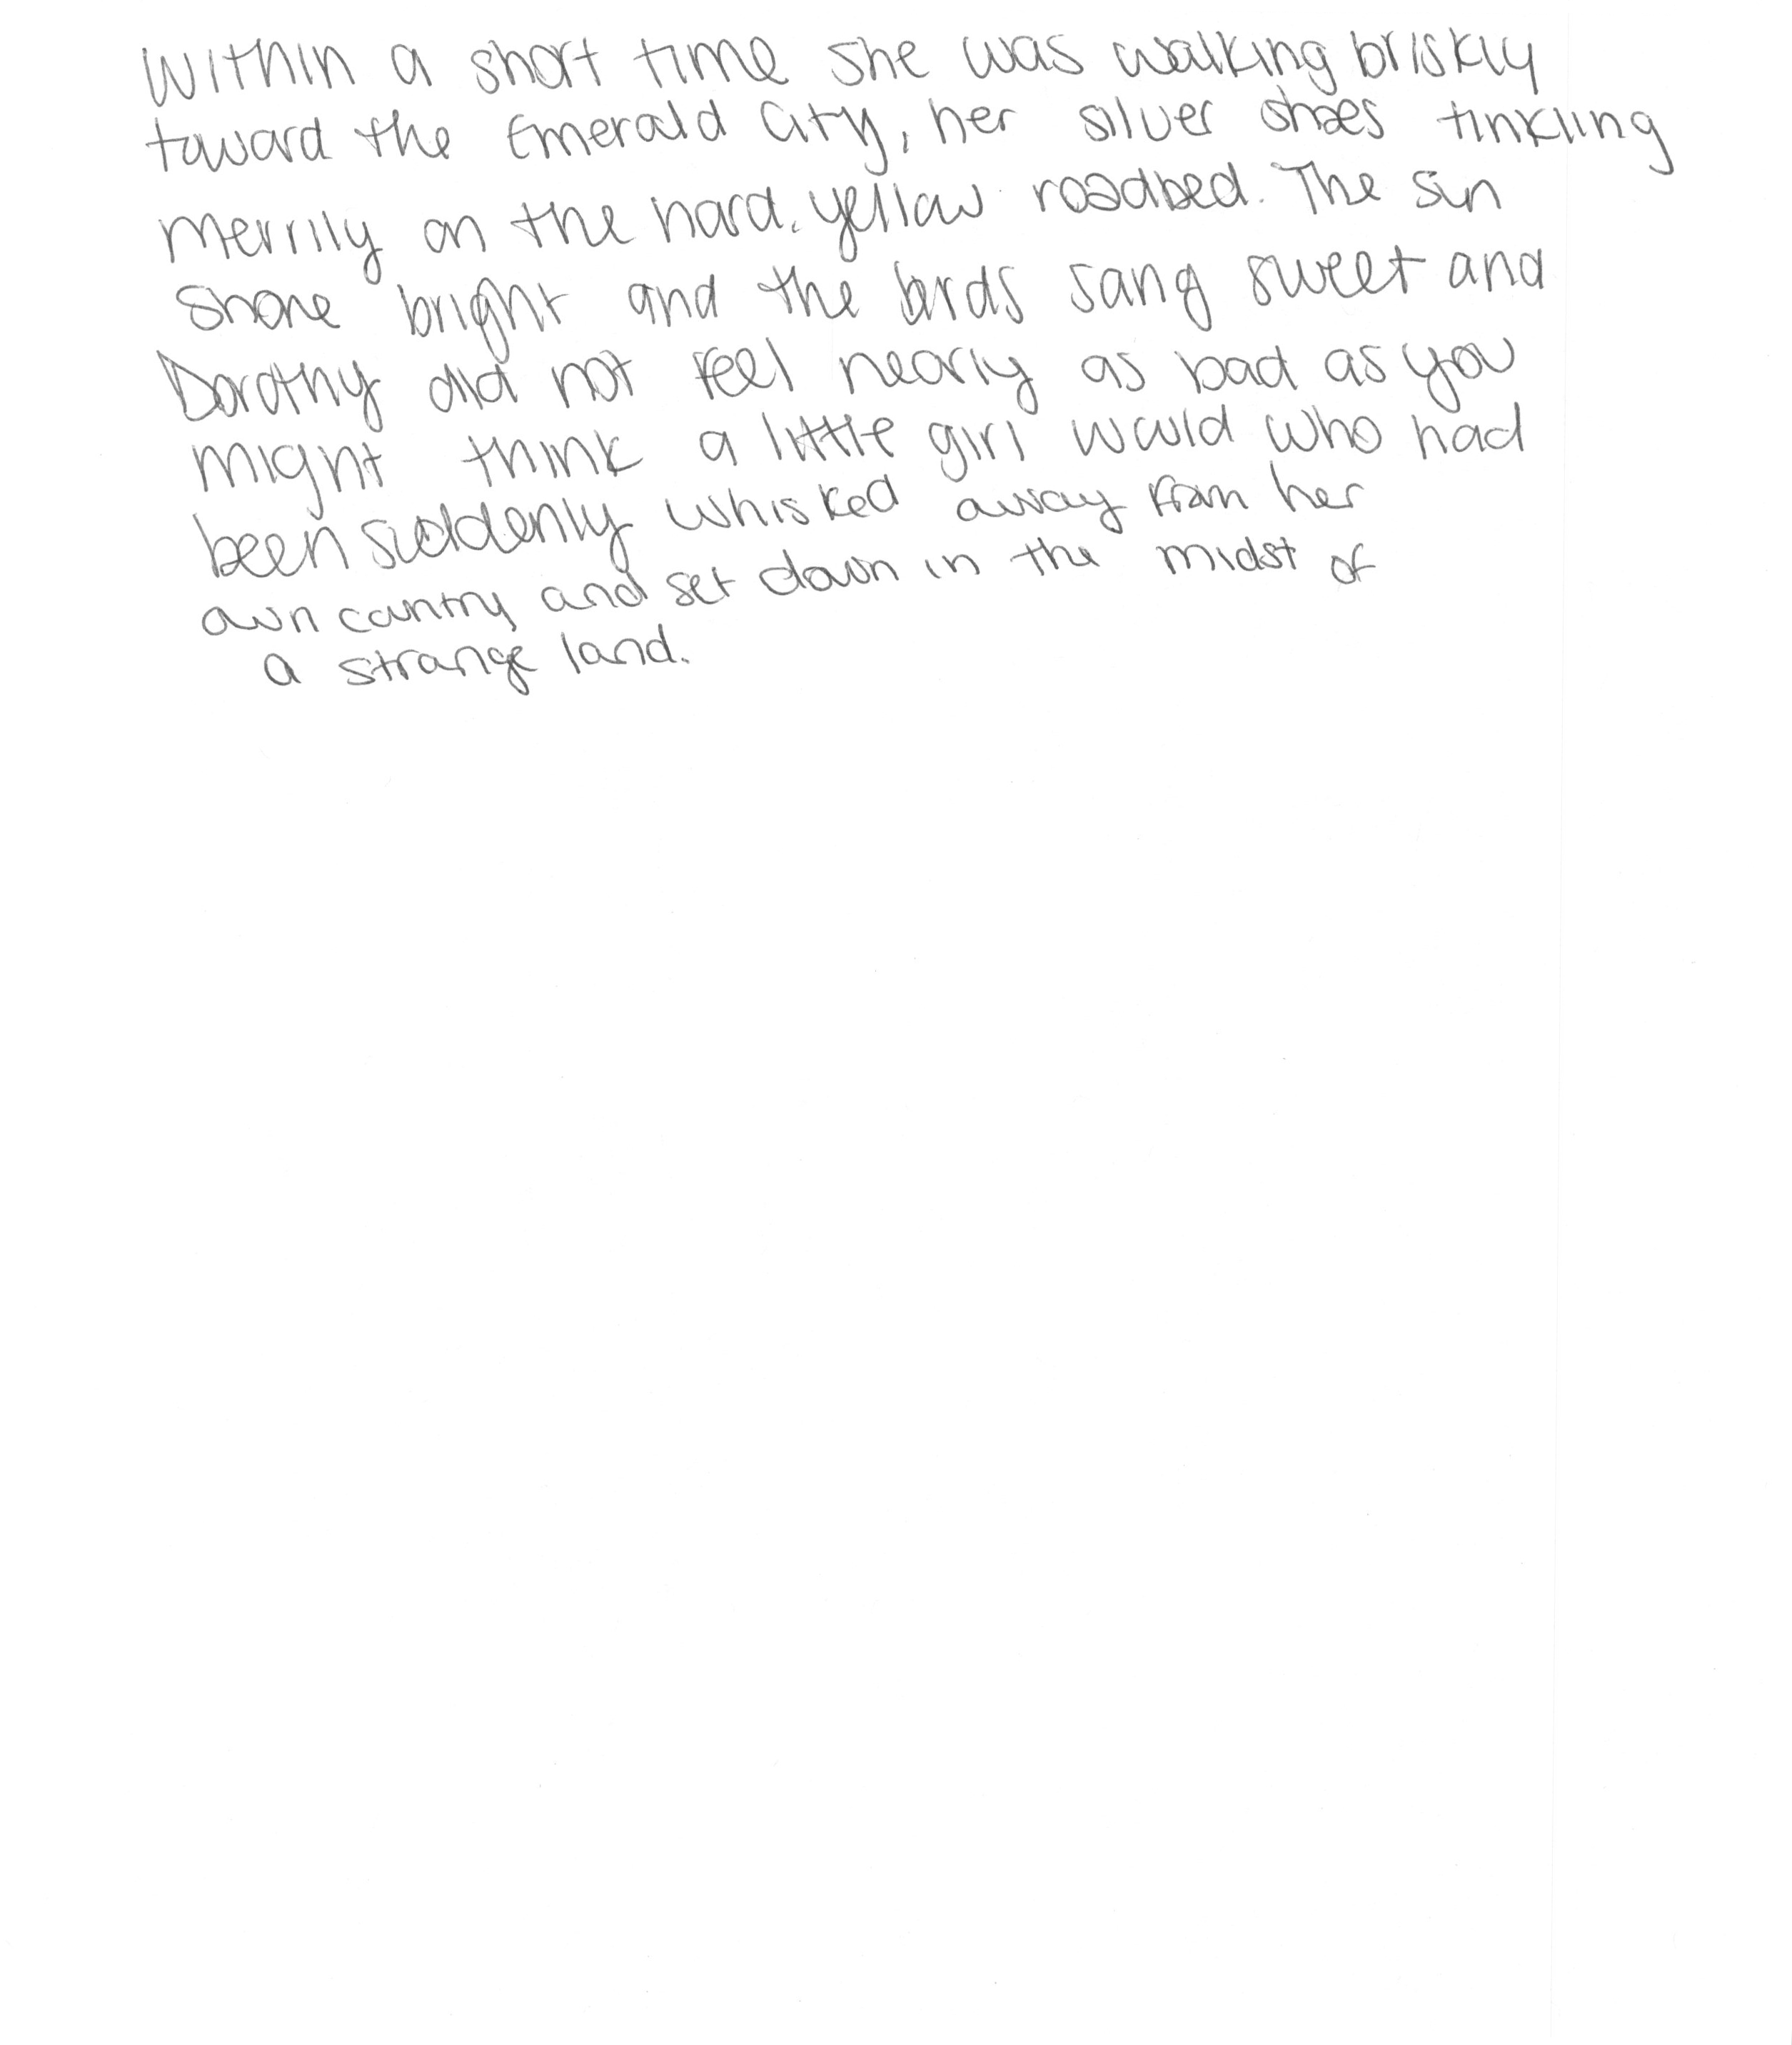 Within a short time she was walking briskly
toward the Emerald City, her silver shoes tinkling
merrily on the hard, yellow roadbed. The sun
shone bright and the birds sang sweet and
Dorothy did not feel nearly as bad as you
might think a little girl would who had
been suddenly whisked away from her
own country and set down in the midst of
a strange land.